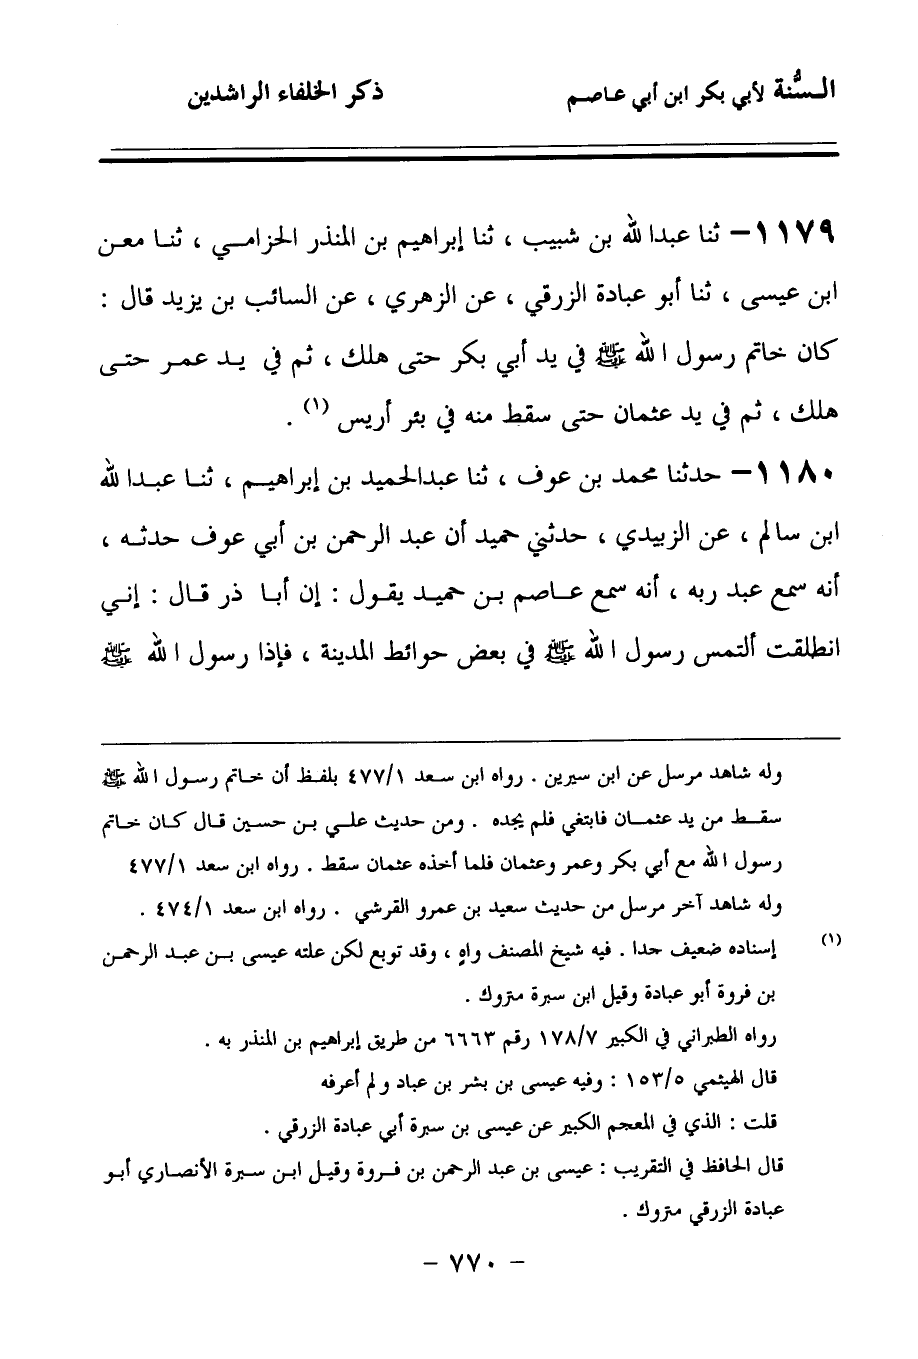 السُّنة لأبي بكر ابن أبي عاصم ذكر الخلفاء الراشدين
١١٧٩- ثنا عبدالله بن شبيب ، ثنا إبراهيم بن المنذر الحزامي ، ثنا معن
ابن عيسى ، ثنا أبو عبادة الزرقي ، عن الزهري ، عن السائب بن يزيد قال :
كان خاتم رسول الله ﷺ في يد أبي بكر حتى هلك ، ثم في يد عمر حتى
هلك ، ثم في يد عثمان حتى سقط منه في بئر أريس (١) .
١١٨٠- حدثنا محمد بن عوف ، ثنا عبدالحميد بن إبراهيم ، ثنا عبدالله
ابن سالم ، عن الزبيدي ، حدثني حميد أن عبد الرحمن بن أبي عوف حدثه ،
أنه سمع عبد ربه ، أنه سمع عاصم بن حميد يقول : إن أبا ذر قال : إني
انطلقت ألتمس رسول الله ﷺ في بعض حوائط المدينة ، فإذا رسول الله ﷺ
وله شاهد مرسل عن ابن سيرين . رواه ابن سعد ٤٧٧/١ بلفظ أن خاتم رسول الله ﷺ
سقط من يد عثمان فابتغي فلم يجده . ومن حديث علي بن حسين قال كان خاتم
رسول الله مع أبي بكر وعمر وعثمان فلما أخذه عثمان سقط . رواه ابن سعد ٤٧٧/١
وله شاهد آخر مرسل من حديث سعيد بن عمرو القرشي . رواه ابن سعد ٤٧٤/١ .
(١) إسناده ضعيف جدا . فيه شيخ المصنف واهٍ ، وقد توبع لكن علته عيسى بن عبد الرحمن
بن فروة أبو عبادة وقيل ابن سبرة متروك .
رواه الطبراني في الكبير ١٧٨/٧ رقم ٦٦٦٣ من طريق إبراهيم بن المنذر به .
قال الهيثمي ١٥٣/٥ : وفيه عيسى بن بشر بن عباد ولم أعرفه
قلت : الذي في المعجم الكبير عن عيسى بن سبرة أبي عبادة الزرقي .
قال الحافظ في التقريب : عيسى بن عبد الرحمن بن فروة وقيل ابن سبرة الأنصاري أبو
عبادة الزرقي متروك .
- ٧٧٠ -